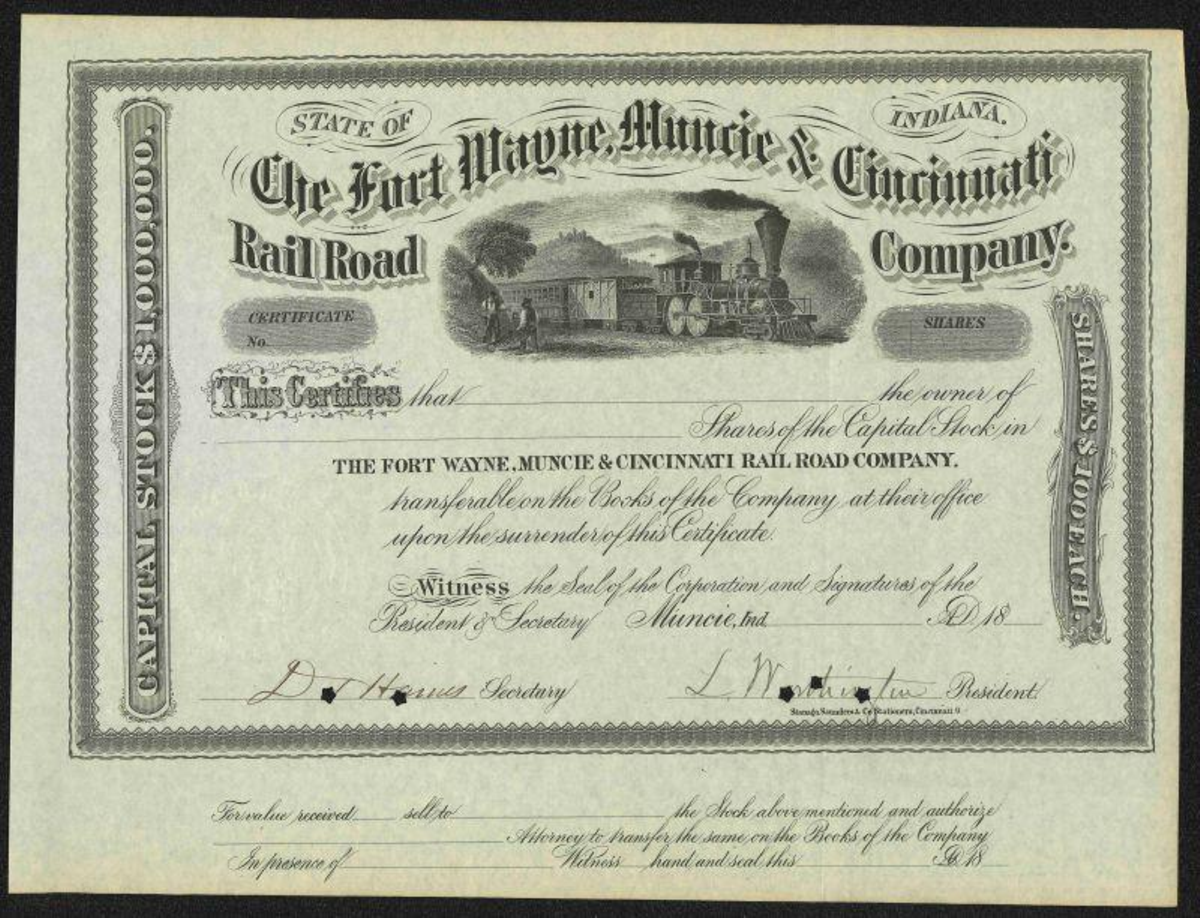 STATE OF
INDIANA.
The Fort Wayne, Muncie & Cincinnati
Rail Road
Company.
CAPITAL STOCK $1.000.000.
CERTIFICATE
No.
SHARES
SHARES $100 EACH.
This Certifies that the owner of
Shares of the Capital Stock in
THE FORT WAYNE, MUNCIE & CINCINNATI RAIL ROAD COMPANY.
transferable on the Books of the Company at their office
upon the surrender of this Certificate.
Witness the Seal of the Corporation and Signatures of the
President & Secretary Muncie, Ind. AD 18
Secretary L Worthington President.
Saunders & Co Stationers, Cincinnati O.
For value received sell to the Stock above mentioned and authorize
Attorney to transfer the same on the Books of the Company
In presence of Witness hand and seal this AD 18